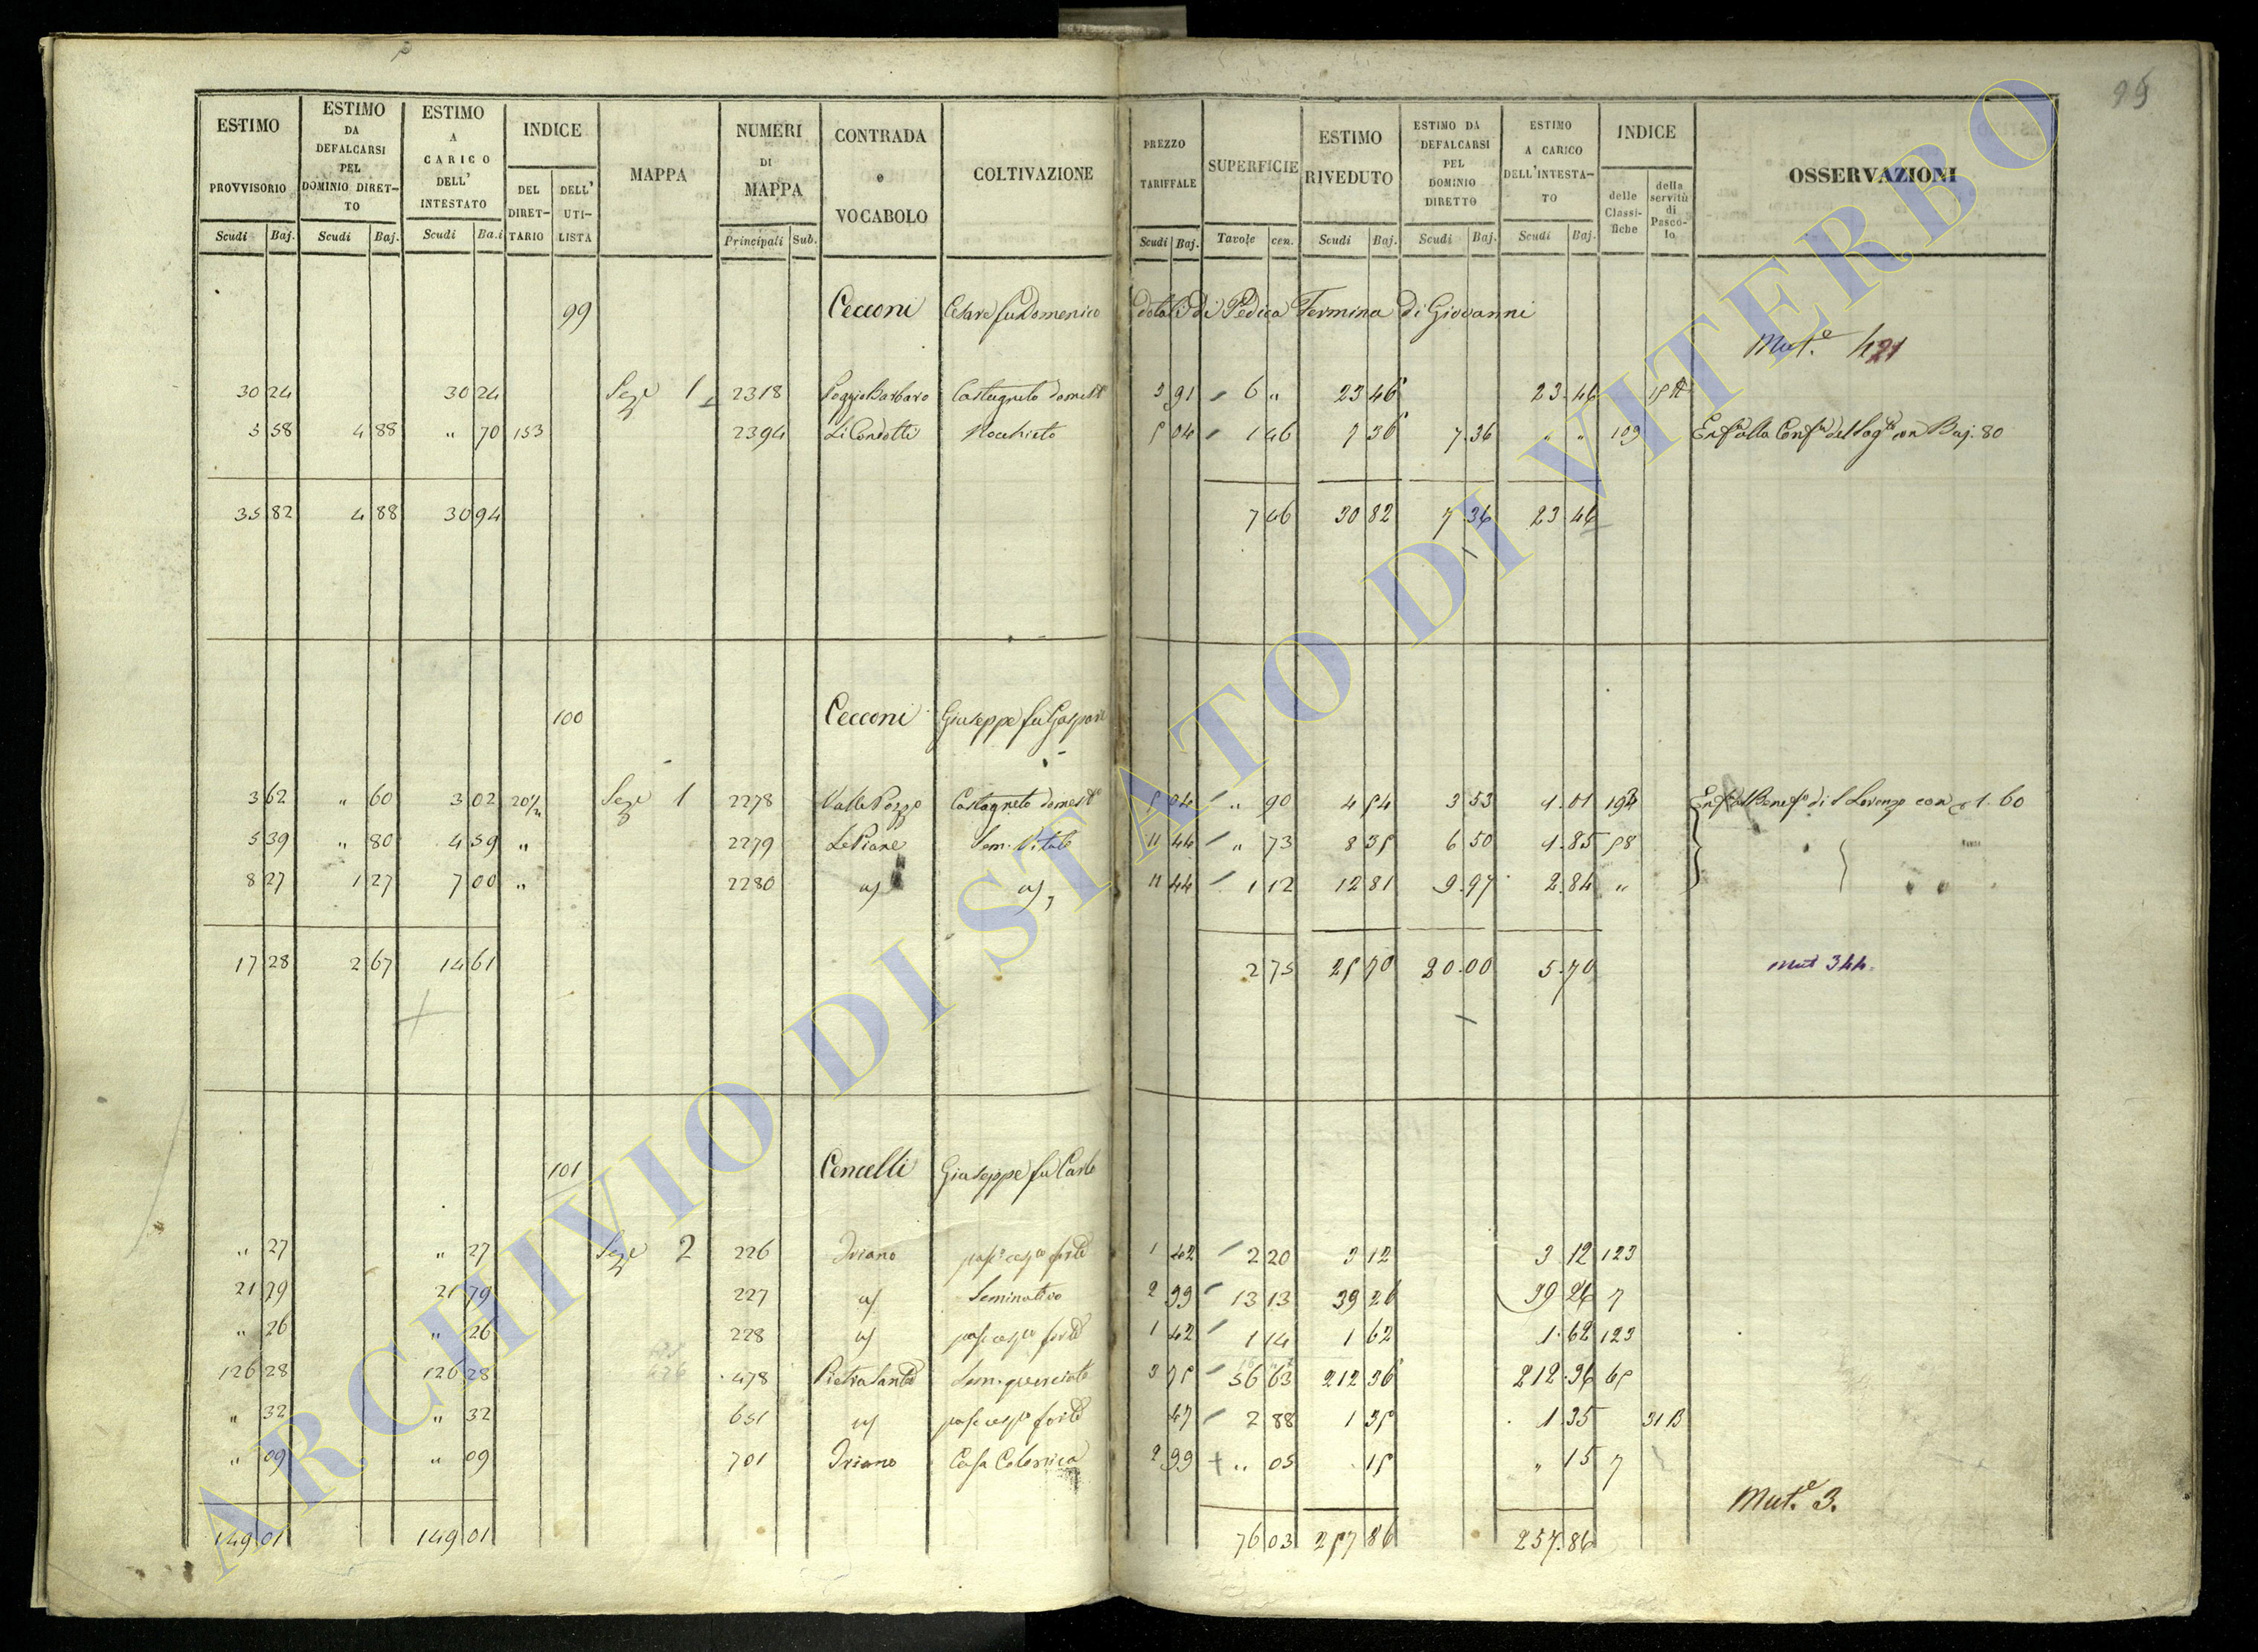 99
ESTIMO PROVVISORIO Scudi Baj.
ESTIMO DA DEFALCARSI PEL DOMINIO DIRETTO Scudi Baj.
ESTIMO A CARICO DELL' INTESTATO Scudi Ba.i
INDICE DEL DIRETTARIO DELL' UTILISTA
MAPPA
NUMERI DI MAPPA Principali Sub.
CONTRADA e VOCABOLO
COLTIVAZIONE
PREZZO TARIFFALE Scudi Baj.
SUPERFICIE Tavole cen.
ESTIMO RIVEDUTO Scudi Baj.
ESTIMO DA DEFALCARSI PEL DOMINIO DIRETTO Scudi Baj.
ESTIMO A CARICO DELL'INTESTATO Scudi Baj.
INDICE delle Classifiche della servitù di Pascolo
OSSERVAZIONI
99 Cecconi Cesare fu Domenico dotali di Pedica Fermina di Giovanni
Mut.e 421
30 24 30 24 Seze 1 2318 Poggio Barbaro Castagneto domest 3 91 6 " 23 46 23.46
5 58 4 88 " 70 153 2394 Li Condotti Nocchieto 5 04 1 46 7 36 7.36 " " 109 Baj. 80
35 82 4 88 30 94 7 46 30 82 7 36 23.46
100 Cecconi Giuseppe fu Gaspare
3 62 " 60 3 02 Seze 1 2278 Valle Pozzo Castagneto domest 5 04 " 90 4 54 3 53 1.01 194 di S Lorenzo con 1.60
5 39 " 80 4 59 " 2279 Le Piane Sem. Vitato 11 44 " 73 8 35 6 50 1.85 58
8 27 1 27 7 00 " 2280 11 44 1 12 12 81 9.97 2.84 "
17 28 2 67 14 61 2 75 25 70 20.00 5.70 Mut 344.
101 Cencelli Giuseppe fu Carlo
" 27 " 27 Seze 2 226 Iriano 1 42 2 20 3 12 3 12 123
21 79 21 79 227 Seminativo 2 99 13 13 39 26 39 26 7
" 26 " 26 228 1 42 1 14 1 62 1.62 123
126 28 126 28 478 Pietra Santa Sem. querciato 3 75 56 63 212 36 212.36 65
" 32 " 32 651 47 2 88 1 35 1.35 31 B
" 09 " 09 701 Iriano Casa Colonica 2 99 " 05 15 " 15 7
Mut.e 3.
149 01 149 01 76 03 257 86 257.86
ARCHIVIO DI STATO DI VITERBO